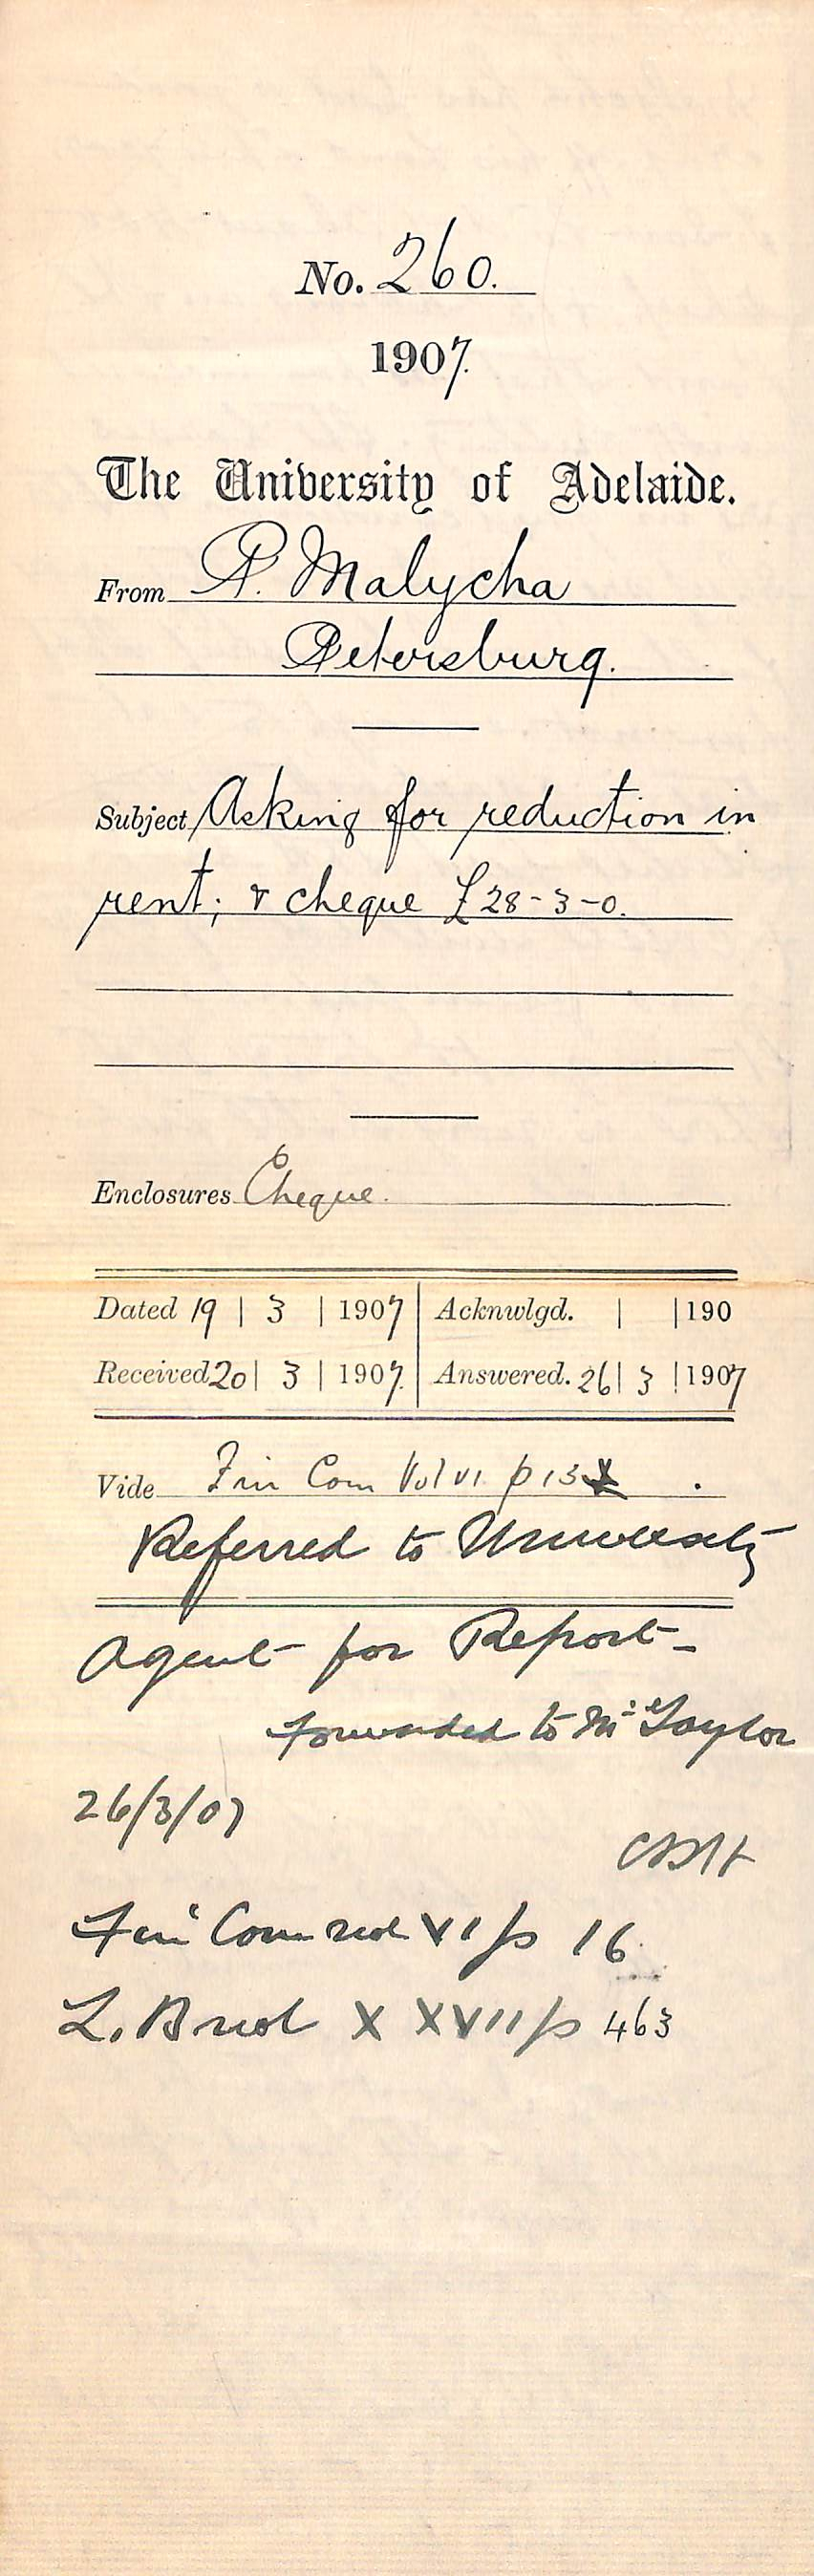 No. 260.
1907.
The University of Adelaide.
From P. Malycha
Petersburg.
Subject Asking for reduction in
rent; & cheque £28-3-0.
Enclosures Cheque.
Dated 19 | 3 | 1907 | Acknwlgd. | | 190
Received 20 | 3 | 1907. | Answered. 26 | 3 | 1907
Vide Fin Com Vol VI p 13
Referred to University
Agent for Report -
Forwarded to Mr Taylor
26/3/07
CRH
Fin Com vol VI p 16
L. B vol XXVII p 463